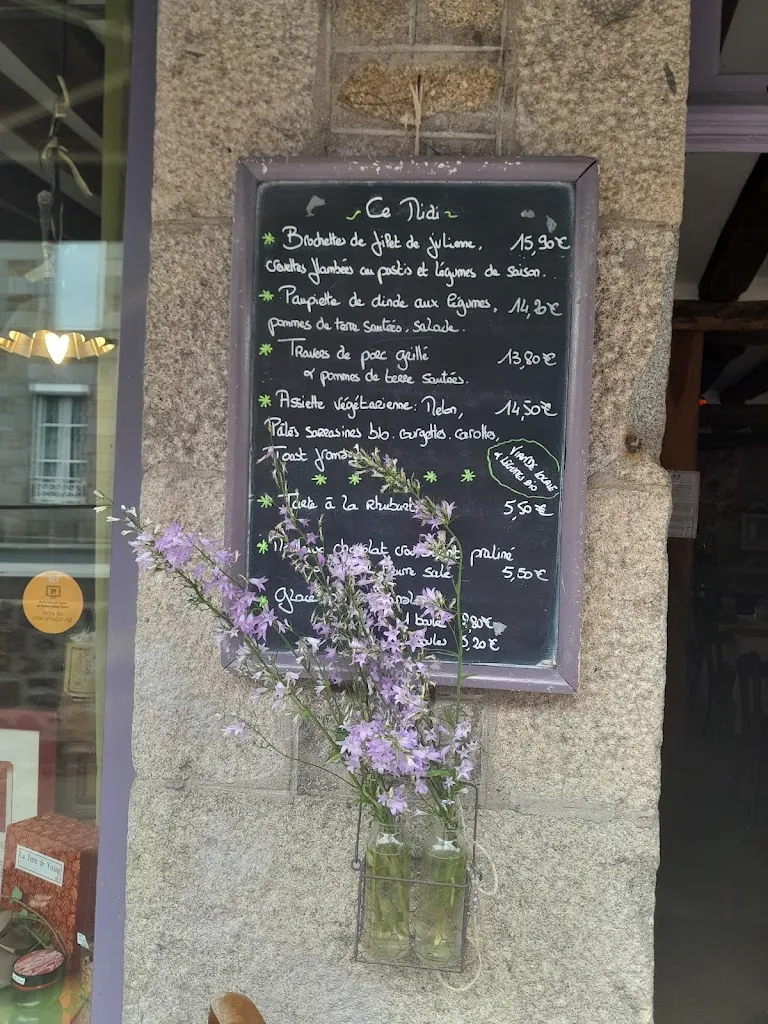 Ce Midi
* Brochettes de filet de julienne, 15,90€
crevettes flambées au pastis et légumes de saison.
* Paupiette de dinde aux légumes, 14,20€
pommes de terre sautées, salade.
* Travers de porc grillé 13,80€
& pommes de terre sautées.
* Assiette végétarienne: Melon, 14,50€
Pâtes sarrasines bio, courgettes, carottes,
Toast
VIANDE LOCALE
& LÉGUMES BIO
* * * *
* Tarte à la rhubarb 5,50€
* chocolat praliné
salé 5,50€
Glace
1 boule
5,20€
La Terre de